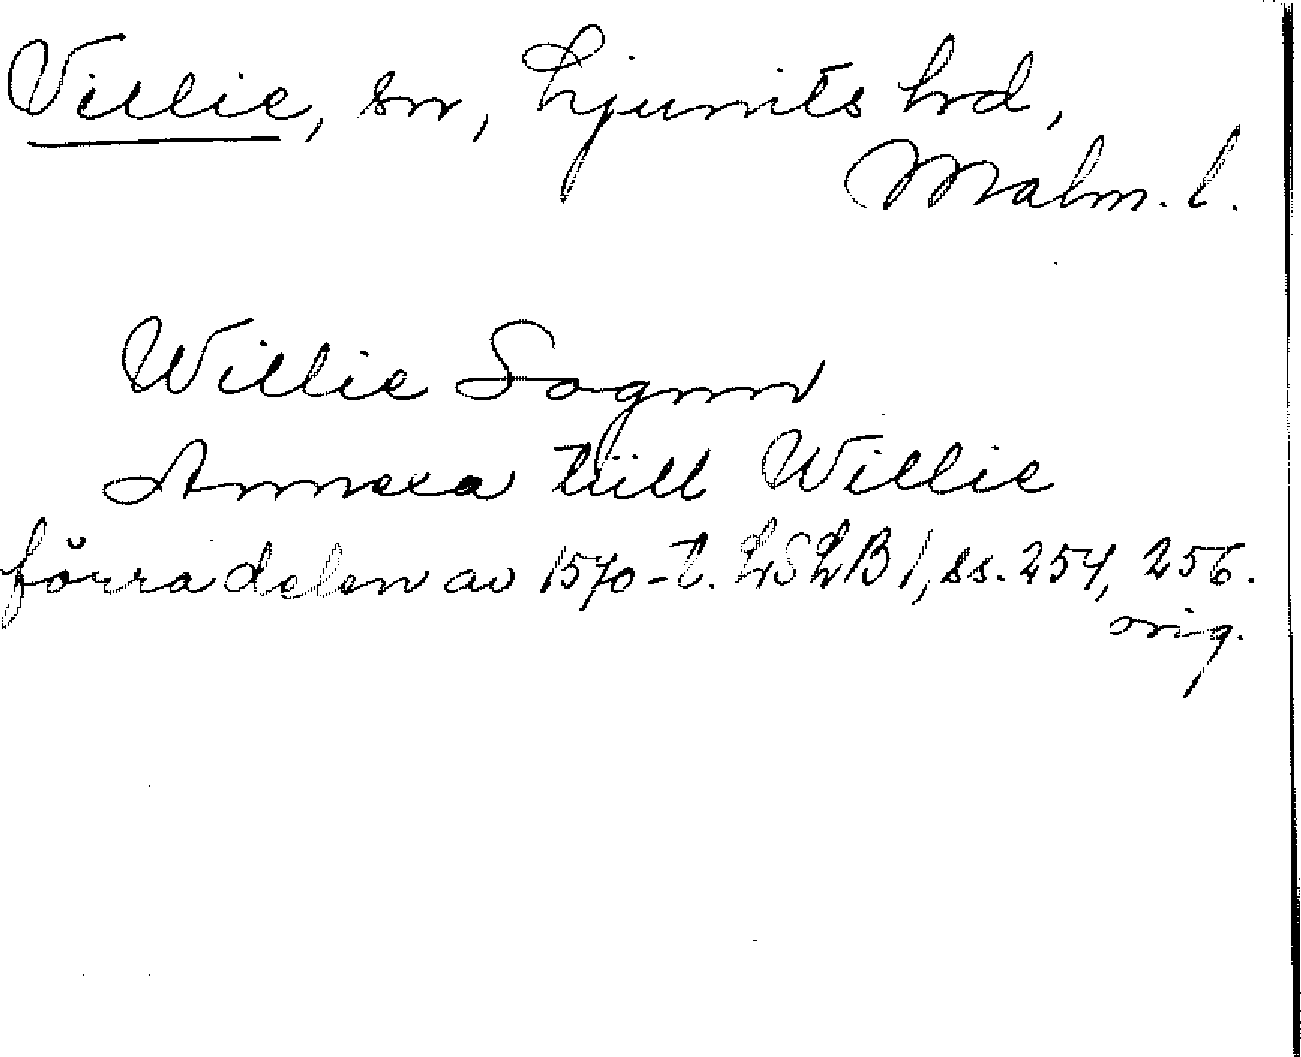 Villie, sn, Ljunits hd,
Malm. l.
Willie Sognn
Annexa till Willie
förra delen av 1570-t. LSLB 1, ss. 254, 256.
orig.